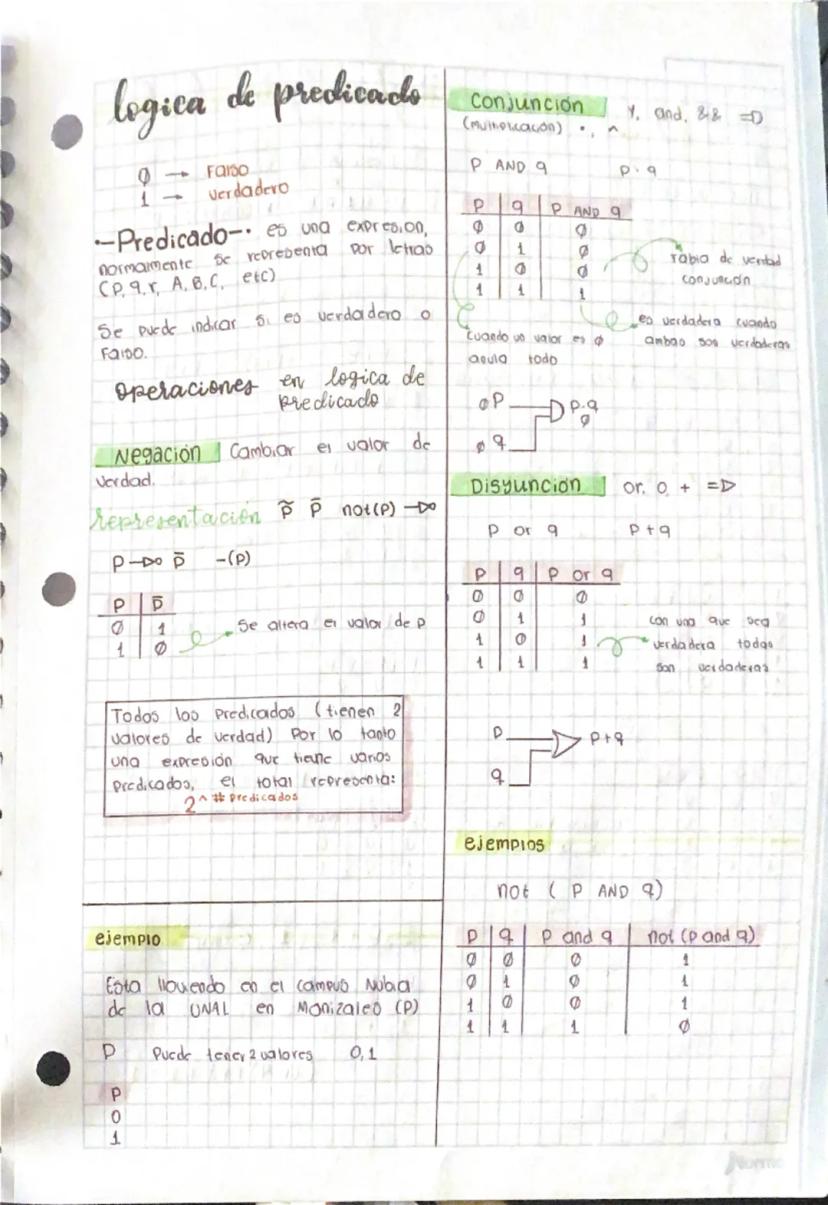 logica de predicado
0 → Falso
1 → verdadero
•-Predicado-• es una expresion,
normalmente se representa por letras
(p, q, r, A, B, C, etc)
Se puede indicar si es verdadero o
Falso.
operaciones en logica de
predicado
Negación Cambiar el valor de
verdad.
representación p̃ p̄ not(p)
p p̄ -(p)
p | p̄
0 | 1
1 | 0
Se altera el valor de p
Todos los predicados (tienen 2
valores de verdad) Por lo tanto
una expresión que tiene varios
predicados, el total representa:
2^ # predicados
ejemplo
Esta lloviendo en el campus Nubia
de la UNAL en Manizales (P)
P Puede tener 2 valores 0,1
P
0
1
Conjunción Y, and, && =D
(multiplicación) •, ^
P AND q p·q
P | q | P AND q
0 | 0 | 0
0 | 1 | 0
1 | 0 | 0
1 | 1 | 1
Tabla de verdad
conjunción
es verdadera cuando
ambas son verdaderas
Cuando un valor es 0
anula todo
0 P p·q
0
0 q
Disyunción or, o, +
P or q P+q
P | q | P or q
0 | 0 | 0
0 | 1 | 1
1 | 0 | 1
1 | 1 | 1
con una que sea
verdadera todas
son verdaderas
P P+q
q
ejemplos
not ( P AND q)
P | q | P and q | not (p and q)
0 | 0 | 0 | 1
0 | 1 | 0 | 1
1 | 0 | 0 | 1
1 | 1 | 1 | 0
Norma